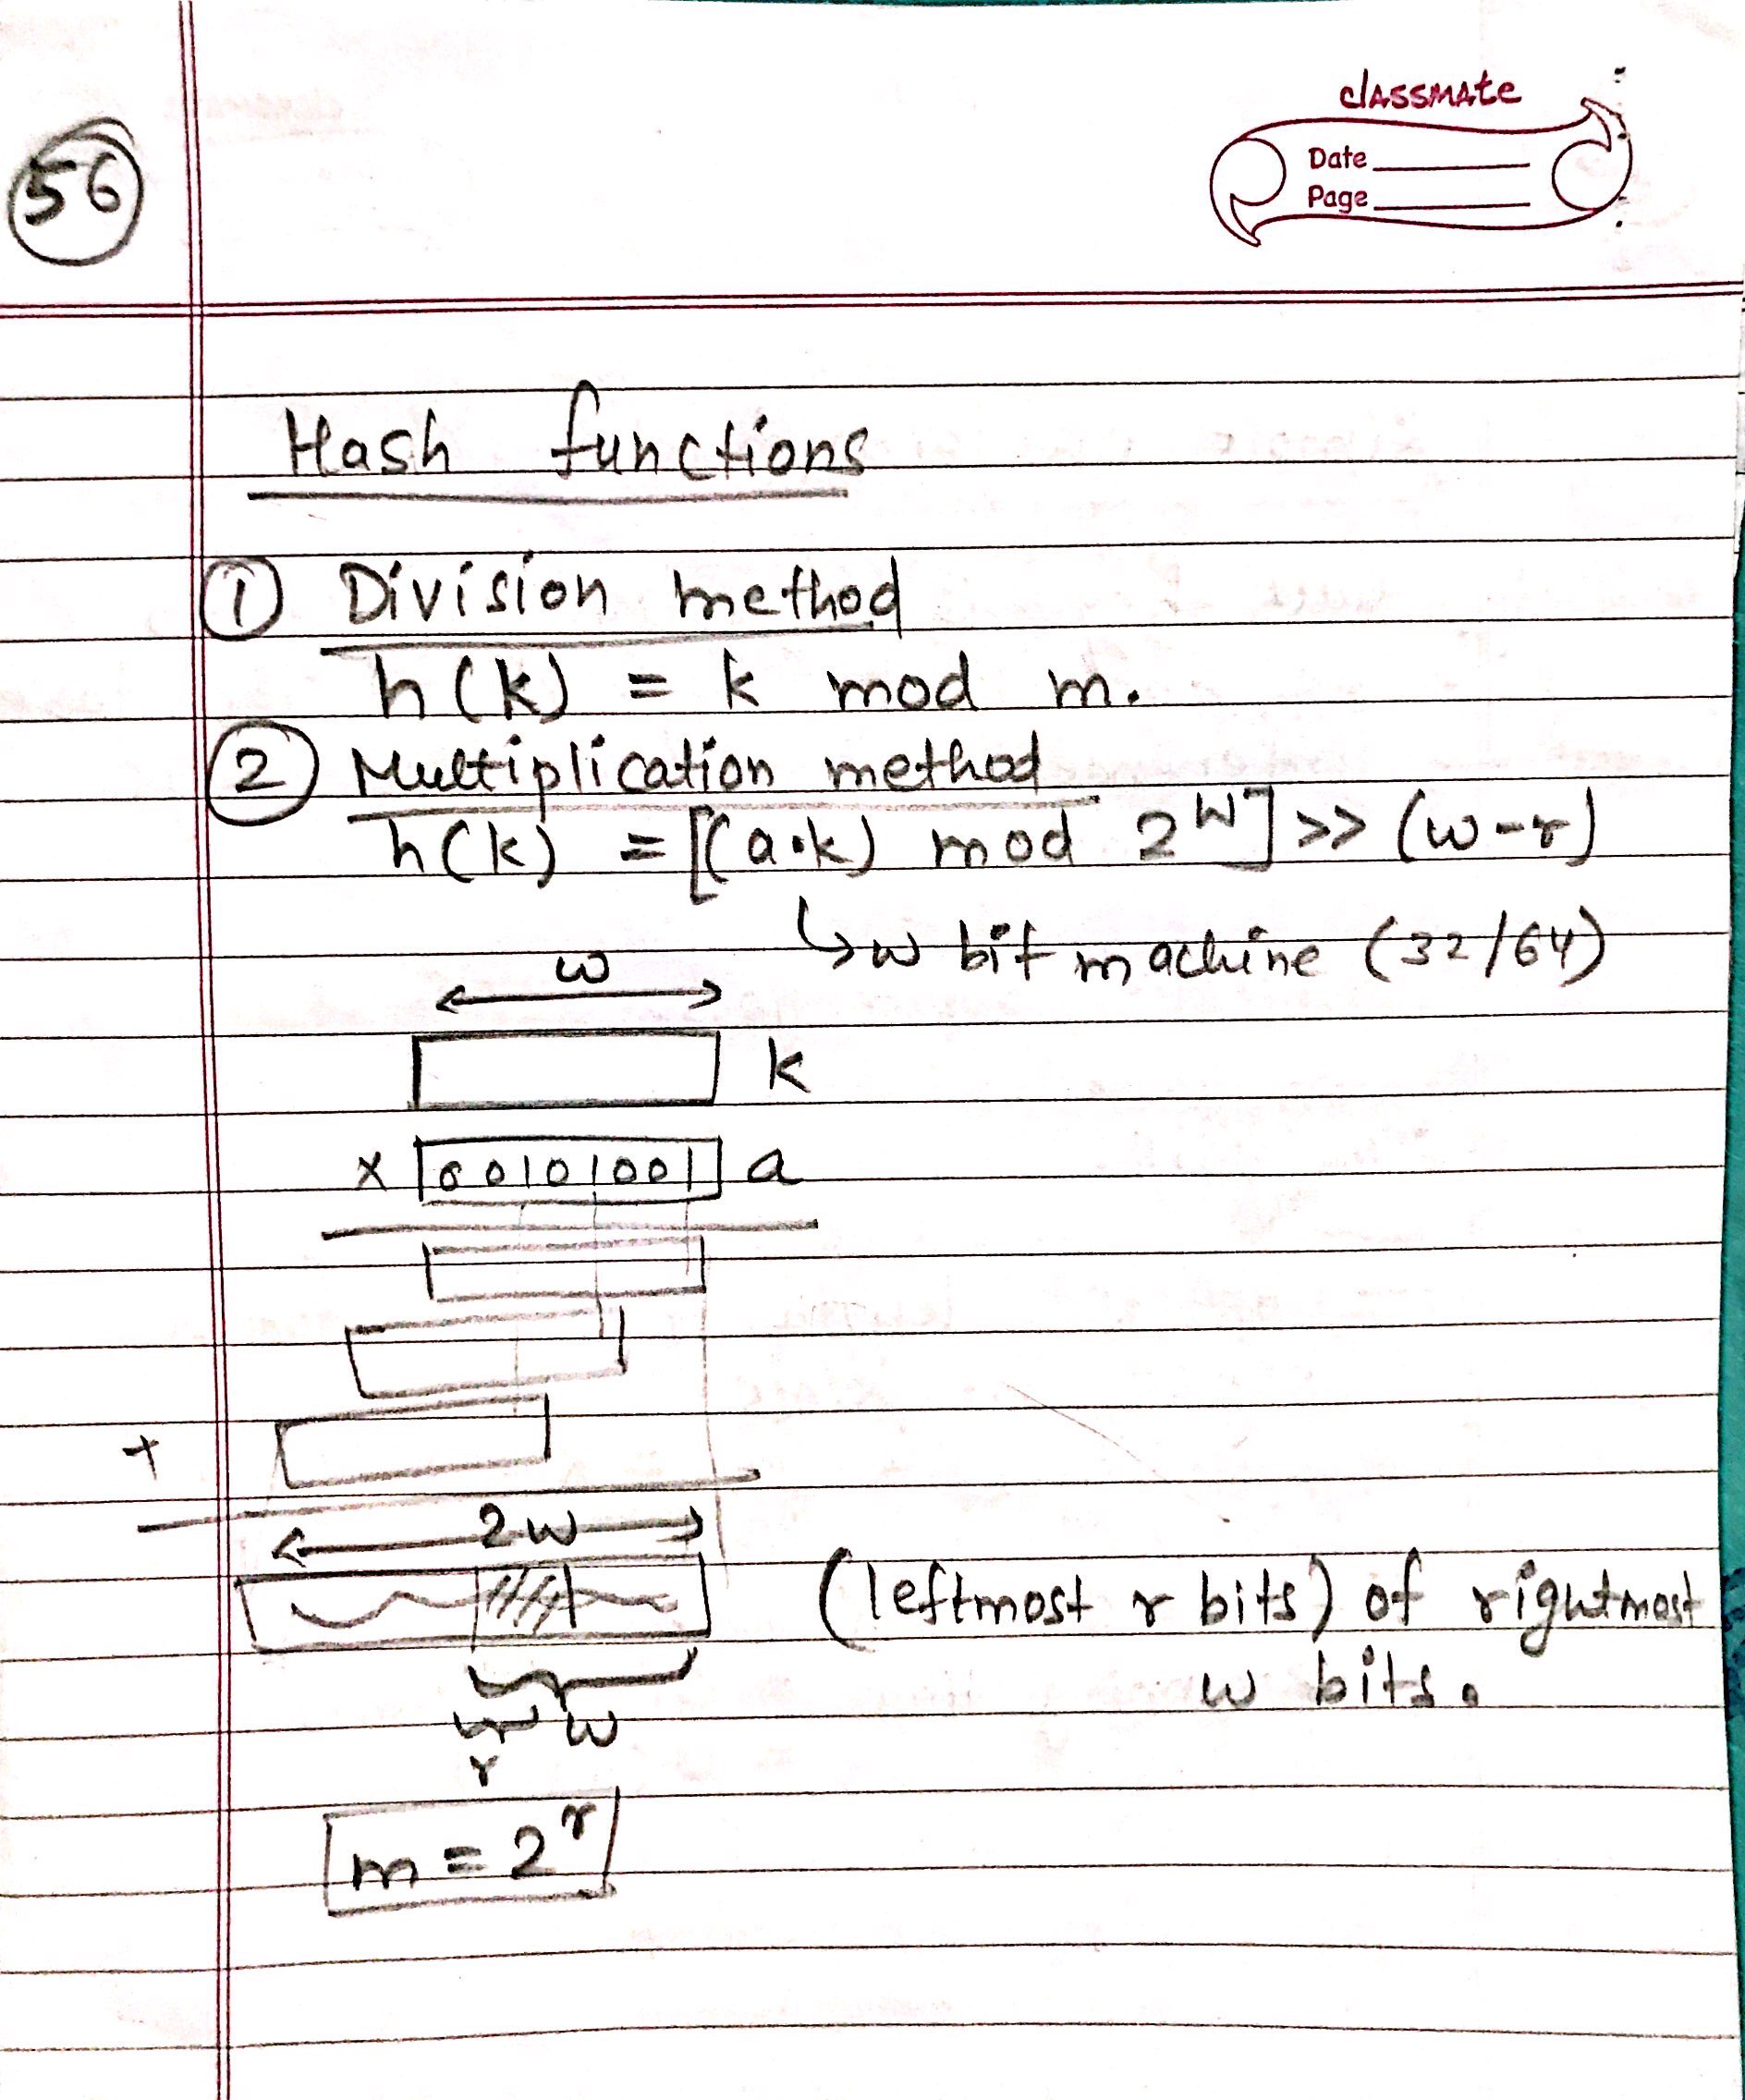 classmate
Date
Page
56
Hash functions
① Division method
h(k) = k mod m.
② Multiplication method
h(k) = [(a·k) mod 2^w] >> (w-r)
↳ w bit machine (32/64)
w
k
x 00101001 a
+
2w
(leftmost r bits) of rightmost
w bits.
w
r
m = 2^r